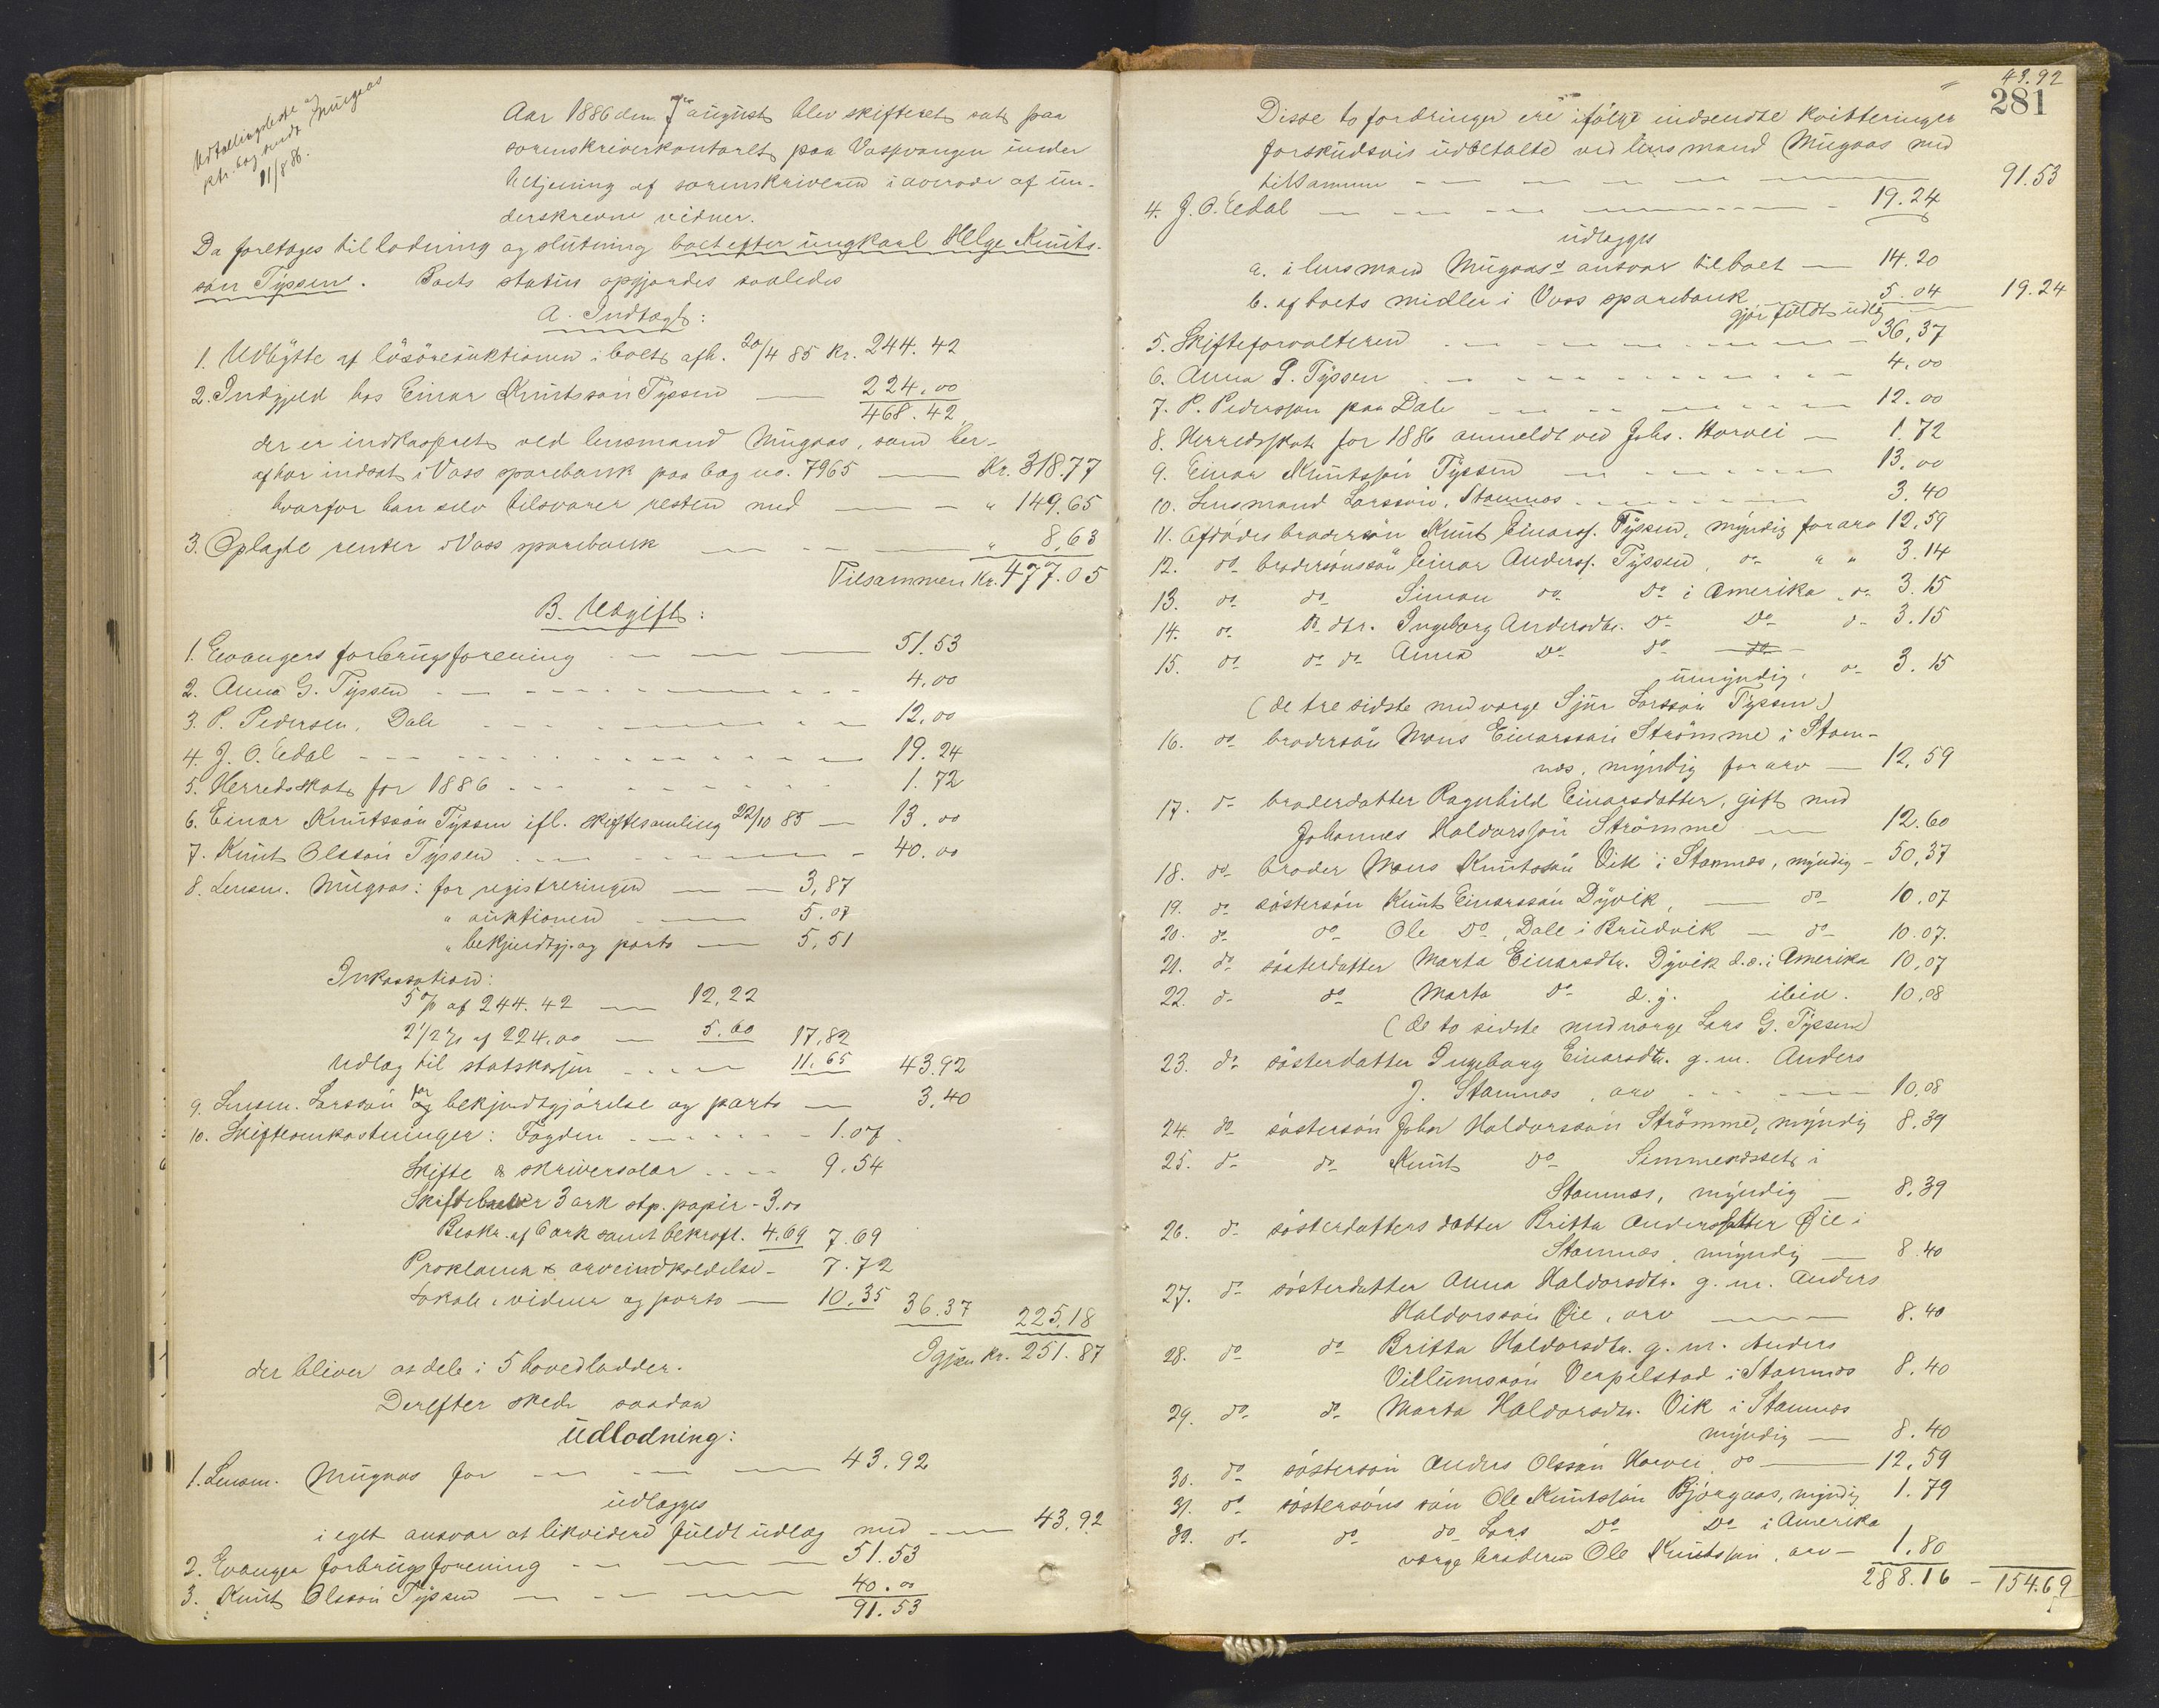 Udtællingsliste af
ktr. bog sendt Mugaas
11/8 86.
Aar 1886 den 7de august blev skifteret sat paa
sorenskriverkontoret paa Vossevangen under
betjening af sorenskriveren i overvær af un-
derskrevne vidner.
Da foretoges til lodning og slutning boet efter ungkarl Helge Knuts-
son Tyssen. Boets status opgjordes saaledes
A. Indtægt:
1. Udbytte af lösöreauktionen i boet afh. 20/4 85 Kr. 244.42
2. Indgjæld hos Einar Knutsson Tyssen — 224.00
468.42
der er indkasseret ved lensmand Mugaas, som her-
af har indsat i Voss sparebank paa bog no. 7965 — Kr. 318.77
hvorfor han selv tilsvarer resten med — — " 149.65
3. Oplagte renter i Voss sparebank — - — " 8,63
Tilsammen Kr. 477.05
B. Udgift:
1. Evangers forbrugsforening — — — 51.53
2. Anna G. Tyssen - - - 4.00
3. P. Pedersen, Dale - - - 12,00
4. J. O. Eedal - - - 19.24
5. Herredskat for 1886 - - - 1.72
6. Einar Knutsson Tyssen ifl. skiftesamling 22/10 85 — 13.00
7. Knut Olsson Tyssen - - - 40.00
8. Lensm. Mugaas: for registreringen — — 3,87
" auktionen — 5.07
" bekjendtgj. og porto — 5,51
Inkassation:
5 % af 244.42 — 12,22
2 1/2 % af 224.00 — 5.60 17,82
Udlæg til statskassen - - - 11.65 43.92
9. Lensm. Larsson for bekjendtgjörelse og porto — 3,40
10. Skifteomkostninger: Fogden - - - 1.07
Skifte & skriversalær - - - 9.54
Skiftebrever 3 ark stp. papir - 3.00
Beskr. af 6 ark samt bekræft. 4.69 7.69
Proklama & arveindkaldelse - 7.72
Lokale, vidner og porto — 10,35 36.37 225.18
Igjen Kr. 251.87
der bliver at dele i 5 hovedlodder.
Derefter skede saadan
Udlodning:
1. Lensm. Mugaas for — — — 43.92
udlægges
i eget ansvar at likvidere fuldt udlæg med — 43.92
2. Evanger forbrugsforening — — — 51.53
3. Knut Olsson Tyssen — — — 40.00
91.53
43.92
281
Disse to fordringer ere ifölge indsendte kvitteringer
forskudsvis udbetalte ved lensmand Mugaas med
tilsammen — — — 91.53
4. J. O. Eedal — — — 19.24
udlægges
a. i lensmand Mugaas's ansvar til boet — 14.20
b. af boets midler i Voss sparebank 5.04 19.24
gjör fuldt udlæg
5. Skifteforvalteren - - - 36,37
6. Anna G. Tyssen - - - 4.00
7. P. Pederssen paa Dale - - - 12.00
8. Herredsskat for 1886 anmeldt ved Johs. Horvei — 1.72
9. Einar Knutsson Tyssen - - - 13.00
10. Lensmand Larsson, Stamnæs - - - 3.40
11. Afdödes broderson Knut Einarss. Tyssen, myndig for arv 12,59
12. do brodersönssön Einar Anderss. Tyssen, do " " 3.14
13. do do Simon do Do i Amerika, do 3.15
14. do Do dtr. Ingeborg Andersdtr. Do Do do 3.15
15. do do do Anna Do do do
umyndig, do 3.15
(de tre sidste med værge Sjur Larsson Tyssen)
16. do brodersön Mons Einarsson Strömme i Stam-
næs, myndig for arv — 12,59
17. do broderdatter Ragnhild Einarsdatter, gift med
Johannes Haldorsson Strömme — 12.60
18. do broder Mons Knutsson Vik i Stamnæs, myndig - 50,37
19. do söstersön Knut Einarsson Dyvik, — do 10,07
20. do do Ole Do, Dale i Brudvik — do 10.07.
21. do sösterdatter Marta Einarsdtr. Dyvik d.æ. i Amerika 10,07
22. do do Marta Do d. y. ibid. 10,08
(de to sidste med værge Lars G. Tyssen)
23. do sösterdatter Ingeborg Einarsdtr. g. m. Anders
J. Stamnæs, arv - - - 10,08
24. do söstersön John Haldorsson Strömme, myndig 8.39
25. do do Knut Do Simmenæsset i
Stamnæs, myndig — 8.39
26. do sösterdatters datter Britta Andersdatter Öie i
Stamnæs, myndig — 8.40
27. do sösterdatter Anna Haldorsdtr. g. m. Anders
Haldorsson Öie, arv — 8.40
28. do do Britta Haldorsdtr. g. m. Anders
Villumsson Verpelstad i Stamnæs 8.40
29. do do Marta Haldorsdtr. Vik i Stamnæs
myndig — 8.40
30. do söstersön Anders Olsson Horvei do — 12,59
31. do söstersöns sön Ole Knutsson Björgaas, myndig 1.79
32. do do do Lars Do Do i Amerika
værge broderen Ole Knutsson, arv - 1.80
288.16 - 154.69